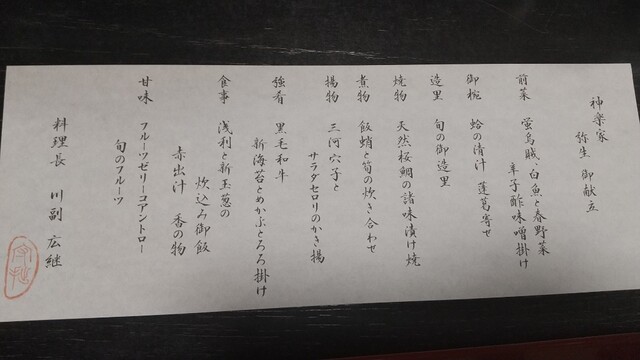 神楽家
弥生 御献立
前菜 蛍烏賊、白魚と春野菜
辛子酢味噌掛け
御椀 蛤の清汁 蓬葛寄せ
造里 旬の御造里
焼物 天然桜鯛の諸味漬け焼
煮物 飯蛸と筍の炊き合わせ
揚物 三河穴子と
サラダセロリのかき揚
強肴 黒毛和牛
新海苔とめかぶとろろ掛け
食事 浅利と新玉葱の
炊込み御飯
赤出汁 香の物
甘味 フルーツゼリーコアントロー
旬のフルーツ
料理長 川副 広継